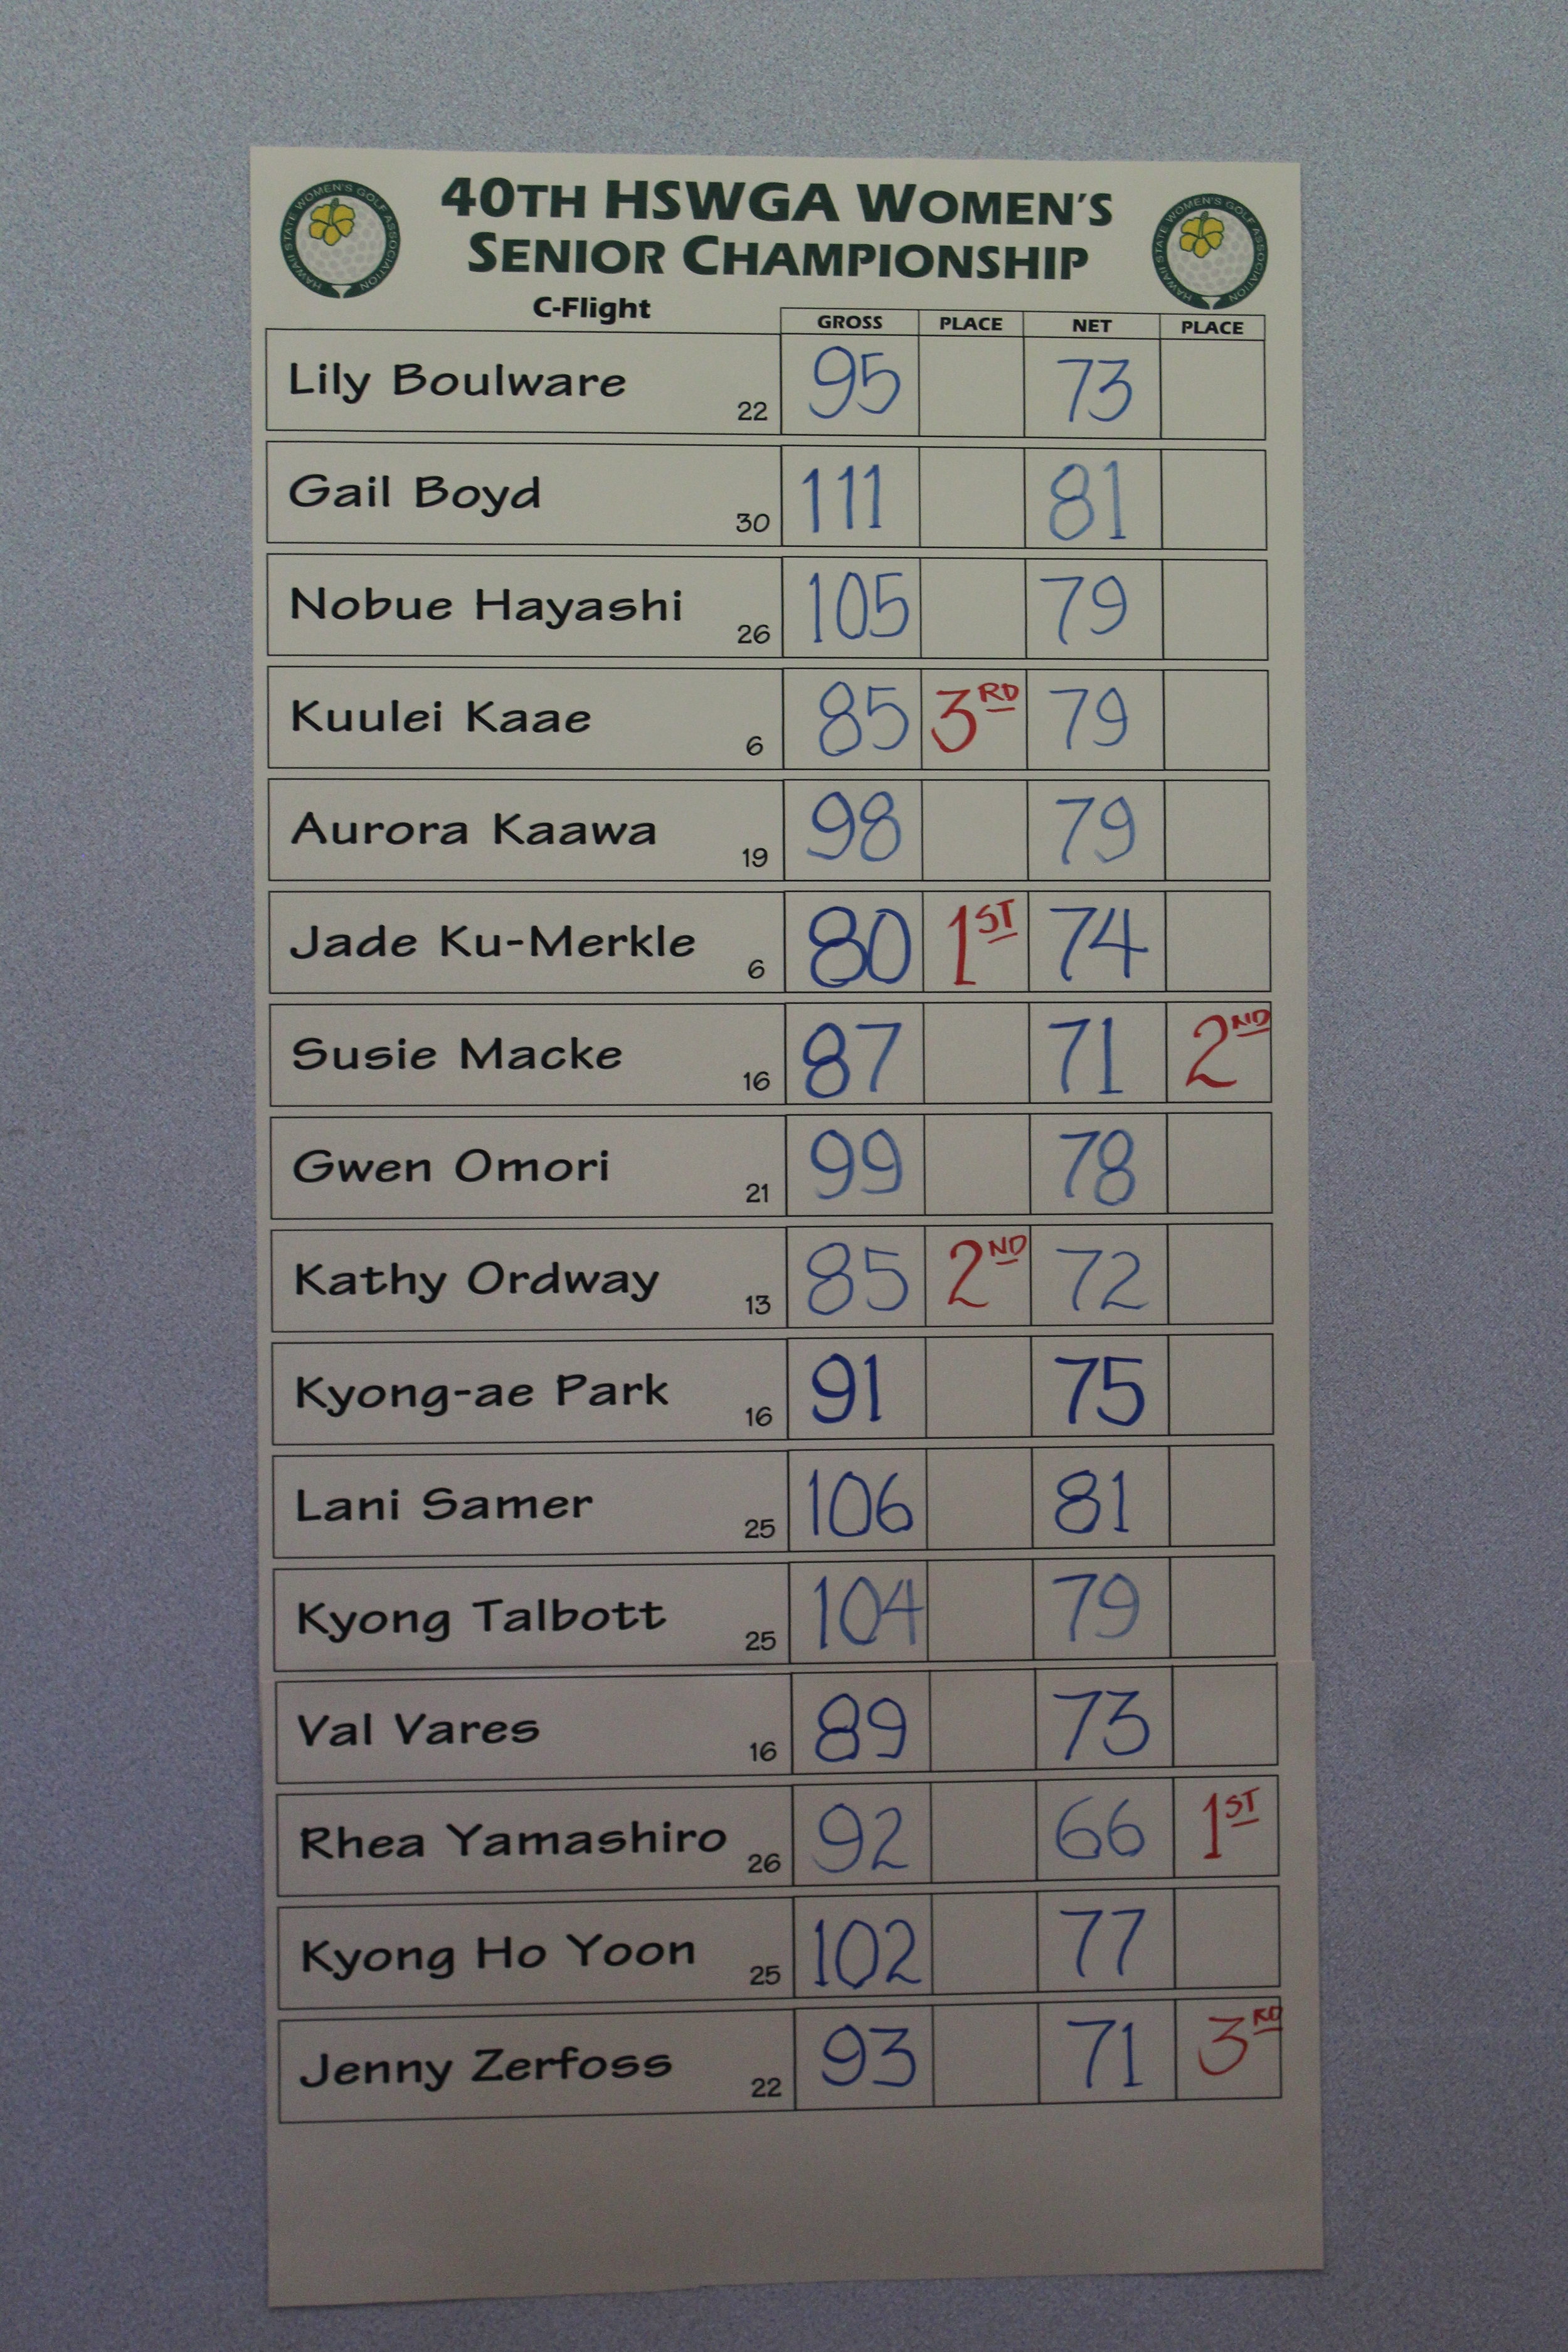 40TH HSWGA WOMEN'S
SENIOR CHAMPIONSHIP
HAWAII STATE WOMEN'S GOLF ASSOCIATION
HAWAII STATE WOMEN'S GOLF ASSOCIATION
C-Flight GROSS PLACE NET PLACE
Lily Boulware 22 95 73
Gail Boyd 30 111 81
Nobue Hayashi 26 105 79
Kuulei Kaae 6 85 3RD 79
Aurora Kaawa 19 98 79
Jade Ku-Merkle 6 80 1ST 74
Susie Macke 16 87 71 2ND
Gwen Omori 21 99 78
Kathy Ordway 13 85 2ND 72
Kyong-ae Park 16 91 75
Lani Samer 25 106 81
Kyong Talbott 25 104 79
Val Vares 16 89 73
Rhea Yamashiro 26 92 66 1ST
Kyong Ho Yoon 25 102 77
Jenny Zerfoss 22 93 71 3RD